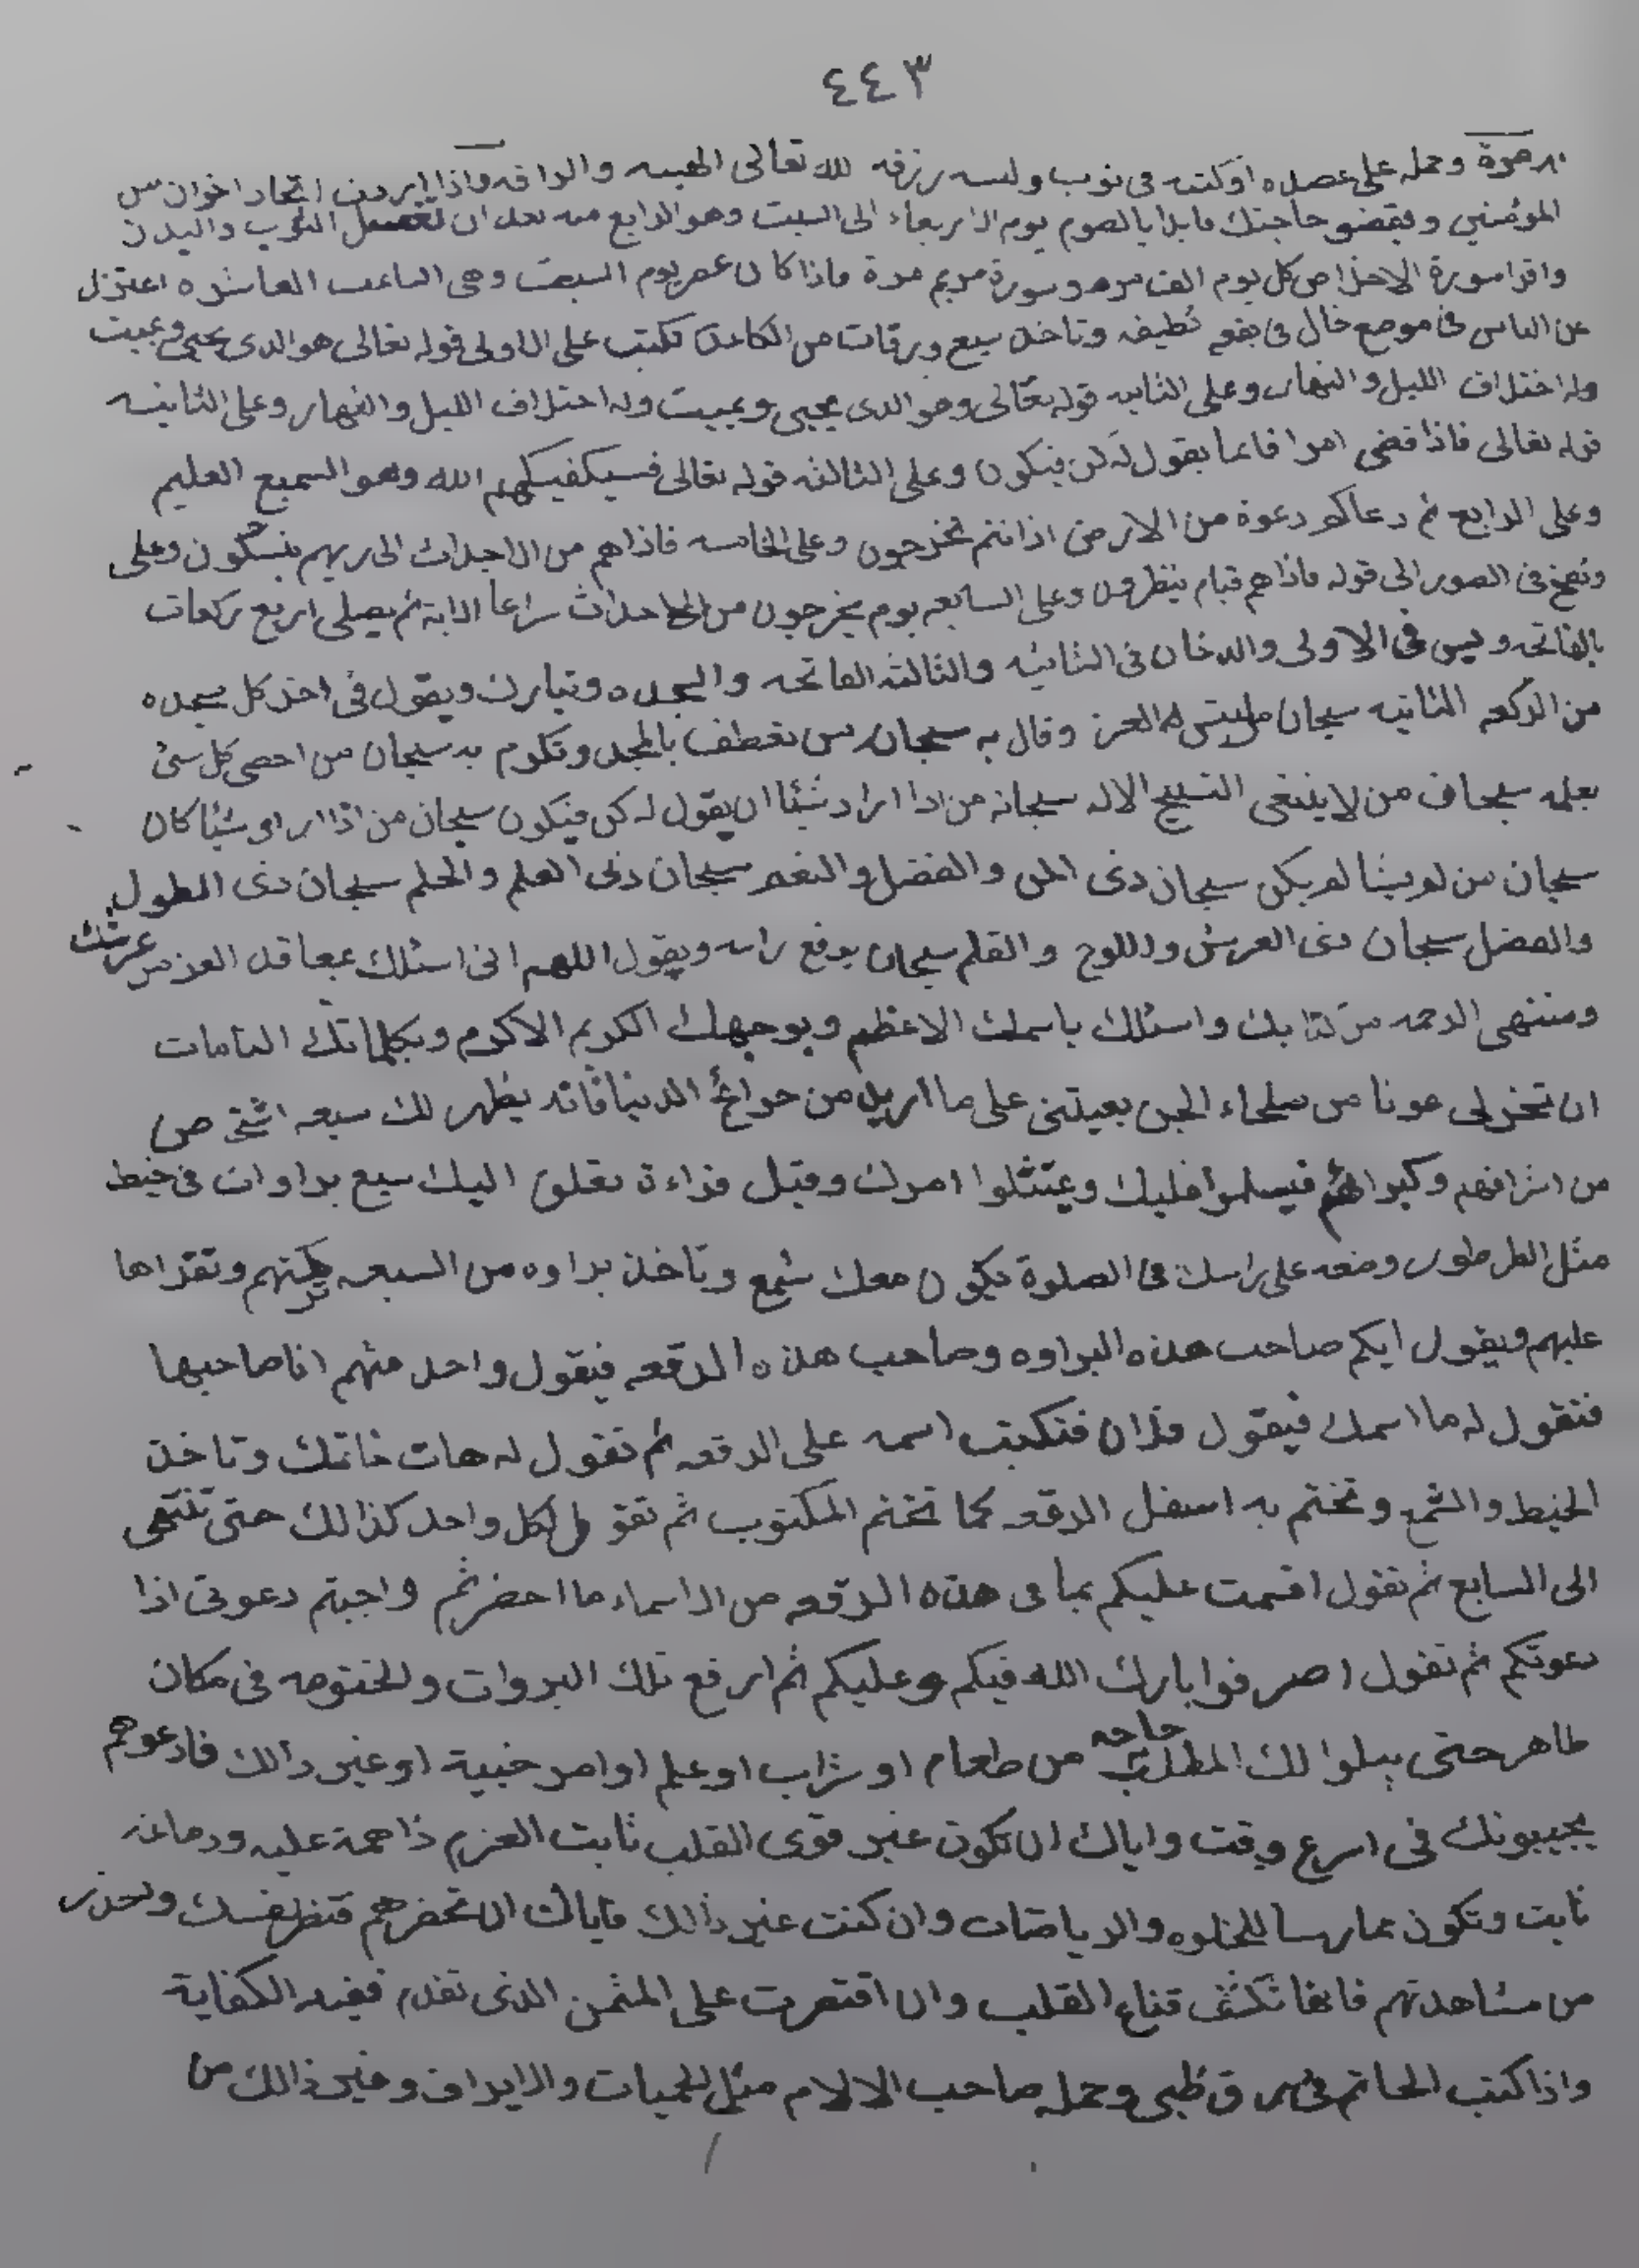 ٤٤٣
مرة وحمله على عضده او كتبه فى ثوب ولبسه رزقه الله تعالى الهيبه والرافه واذا اردت اتخاذ اخوان من
المؤمنين ويقضو حاجتك فابدا بالصوم يوم الاربعاء الى السبت وهو الرابع منه بعد ان تغسل الثوب والبدن
واقرا سورة الاخلاص كل يوم الف مره وسورة مريم مرة فاذا كان عصر يوم السبت وهى الساعت العاشره اعتزل
عن الناس فى موضع خال فى بقعه نظيفه وتاخذ سبع ورقات من الكاغد تكتب على الاولى قوله تعالى هو الذى يحيى ويميت
وله اختلاف الليل والنهار وعلى الثانيه قوله تعالى وهو الدى يحيى ويميت وله اختلاف الليل والنهار وعلى الثانيه
قوله تعالى فاذا قضى امرا فانما يقول له كن فيكون وعلى الثالثه قوله تعالى فسيكفيكهم الله وهو السميع العليم
وعلى الرابع ثم دعاكم دعوة من الارض اذا انتم تخرجون وعلى الخامسه فاذاهم من الاجداث الى ربهم ينسلون وعلى
ونفخ فى الصور الى قوله فاذا هم قيام ينظرون وعلى السابعه يوم يخرجون من الاجداث سراعا الاية ثم يصلى اربع ركعات
بالفاتحه ويس فى الاولى والدخان فى الثانيه والثالثه الفاتحه والسجده وتبارك ويقول فى اخر كل سجده
من الركعه الثانيه سبحان من لبس العز وقال به سبحان من تعطف بالمجد وتكرم به سبحان من احصى كل شئ
بعلمه سبحان من لا ينبغى التسبيح الا له سبحانه من ادا اراد شيئا ان يقول له كن فيكون سبحان من اذا اراد شيئا كان
سبحان من لم يشا لم يكن سبحان ذى المن والفضل والنعم سبحان ذى العلم والحلم سبحان ذى الطول
والفضل سبحان ذى العرش واللوح والقلم سبحان يرفع راسه ويقول اللهم انى اسئلك بمعاقد العز من عرشك
ومنتهى الرحمه من كتابك واسئلك باسمك الاعظم وبوجهك الكريم الاكرم وبكلماتك التامات
ان تسخر لى عونا من صلحاء الجن يعينى على ما اريد من حوائج الدنيا فانه يظهر لك سبعه اشخاص
من اشرافهم وكبرائهم فيسلموا عليك ويمتثلوا امرك وقبل قراءة تعلق اليك سبع براوات فى خيط
مثل الطرطور وضعه على راسك فى الصلوة ويكون معك شمع وتاخذ براوه من السبعه وتقراها
عليهم ويقول ايكم صاحب هذه البراوه وصاحب هذه الرقعه فيقول واحد منهم انا صاحبها
فتقول له ما اسمك فيقول فلان فتكتب اسمه على الرقعه ثم تقول له هات خاتمك وتاخذ
الخيط والشمع وتختم به اسفل الرقعه كما تختم المكتوب ثم تقول لكل واحد كذالك حتى تنتهى
الى السابع ثم تقول اقسمت عليكم بما فى هذه الرقعه من الاسماء ما احضرتم واجبتم دعوتى اذا
دعوتكم ثم تقول اصرفوا بارك الله فيكم وعليكم ثم ارفع تلك البروات والختومه فى مكان
طاهر حتى يبدوا لك المطلب حاجه من طعام او شراب او علم او امر خبية او غير دالك فادعوهم
يجيبونك فى اسرع وقت واياك ان تكون غير قوى القلب ثابت العزم ذا همة عليه ودماغه
ثابت وتكون ممارسا للخلوه والرياضات وان كنت غير ذالك فاياك ان تحضرهم فتضر نفسك وتحذر
من مشاهدتهم فانها تكشف قناع القلب وان اقتصرت على المثمن الذى تقدم ففيه الكفاية
واذا كتب الخاتم فى رق ظبى وحمله صاحب الالام مثل الحميات والايراف وغير ذالك من